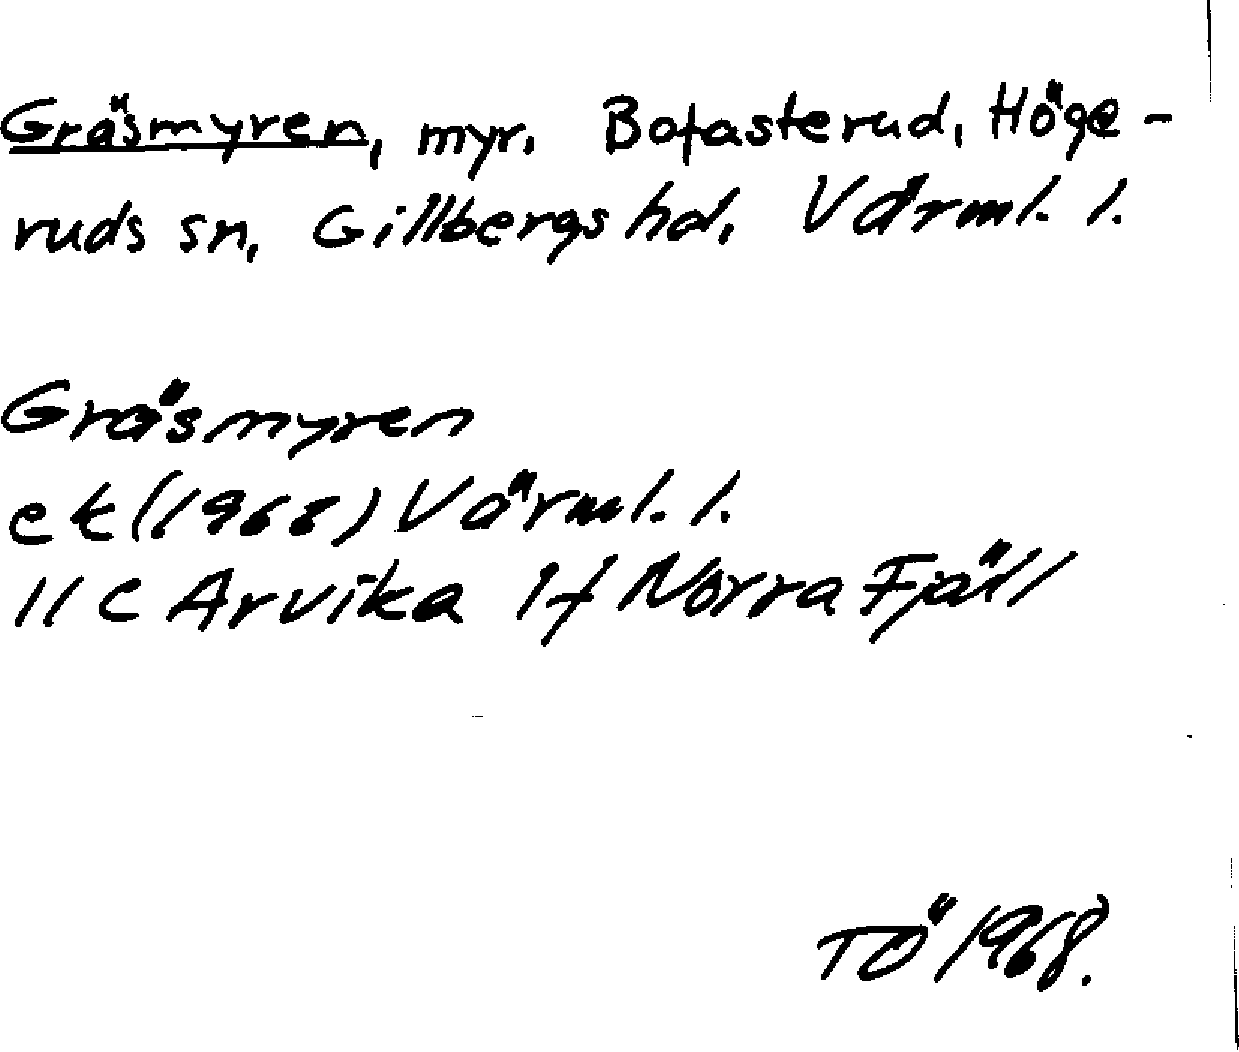 Gräsmyren, myr. Bofasterud, Höge-
ruds sn, Gillbergs hd, Värml. l.
Gräsmyren
ek (1968) Värml. l.
11 C Arvika 1f Norra Fjäll
TÖ 1968.